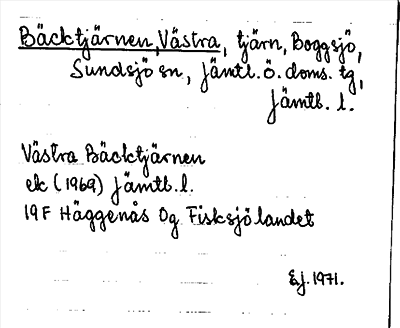 Bäcktjärnen, Västra, tjärn, Boggsjö,
Sundsjö sn, Jämtl. ö. doms. tg,
Jämtl. l.
Västra Bäcktjärnen
ek (1969) Jämtl. l.
19F Häggenås Og Fisksjölandet
EJ. 1971.